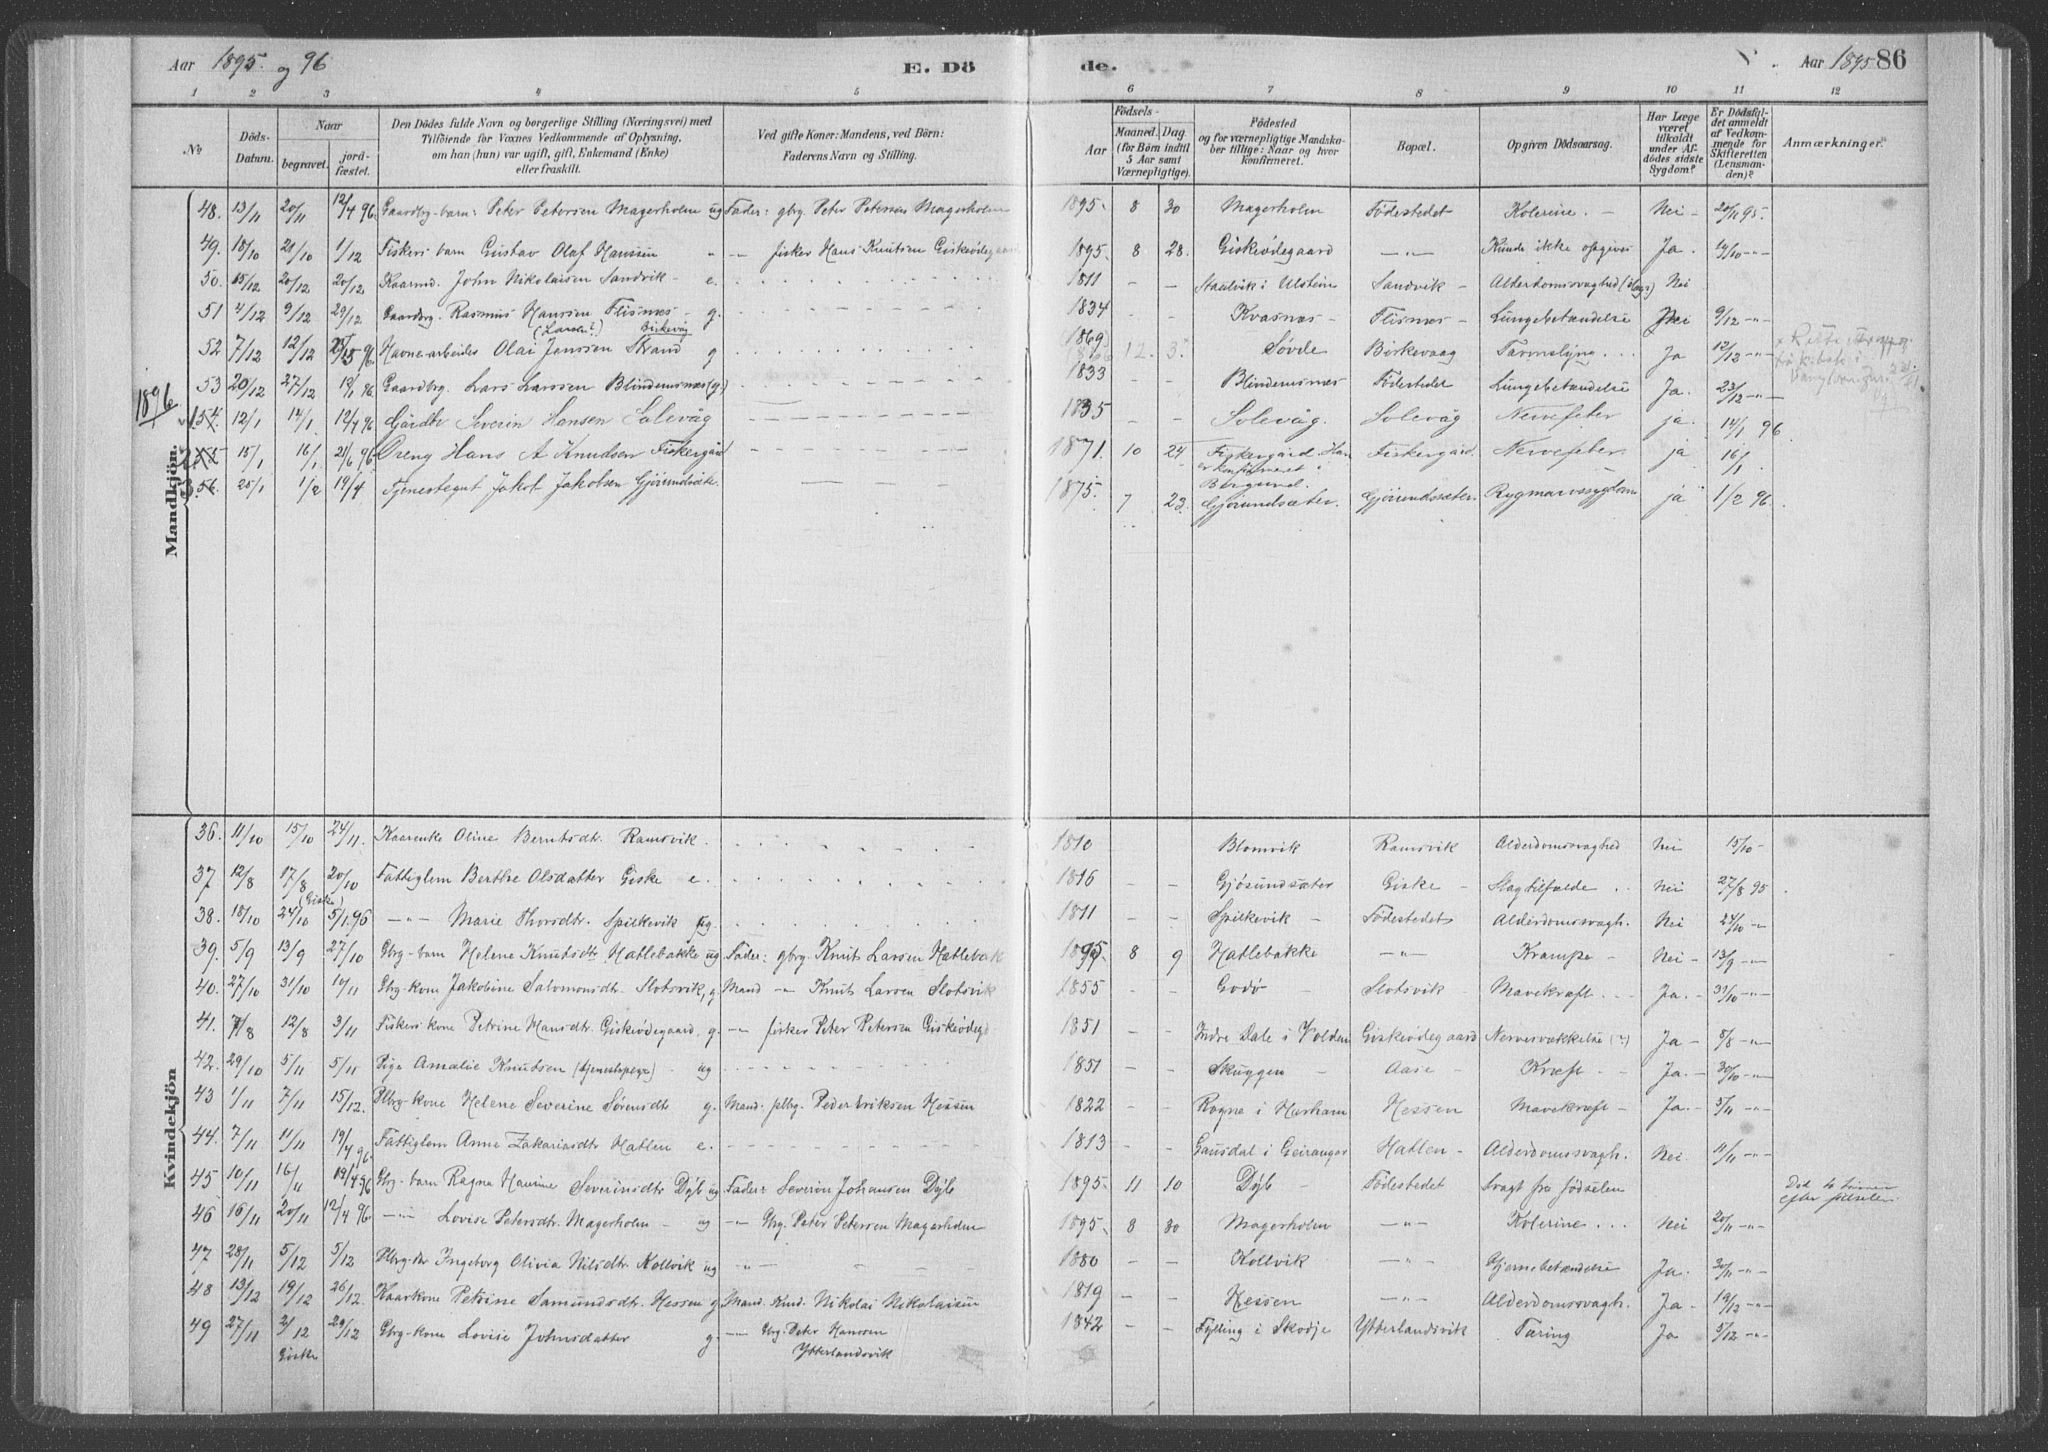 Aar 1895. og 96 E. Dö de. Aar 1895 86
1 2 3 4 5 6 7 8 9 10 11 12
No
Döds-Datum.
Naar
begravet.
jord-fæstet.
Den Dödes fulde Navn og borgerlige Stilling (Næringsvei) med
Tilföiende for Voxnes Vedkommende af Oplysning,
om han (hun) var ugift, gift, Enkemand (Enke)
eller fraskilt.
Ved gifte Koner: Mandens, ved Börn:
Faderens Navn og Stilling.
Födsels-
Aar
Maaned. Dag.
(for Börn indtil
5 Aar samt
Værnepligtige).
Födested
og for værnepligtige Mandska-
ber tillige: Naar og hvor
konfirmeret.
Bopæl.
Opgiven Dödsaarsag.
Har Læge
været
tilkaldt
under Af-
dödes sidste
Sygdom?
Er Dödsfal-
det anmeldt
af Vedkom-
mende for
Skifteretten
(Lensman-
den)?
Anmærkninger.
Mandkjön.
48. 13/11 20/11 12/4 96. Gaardbg.-barn: Peter Petersen Magerholm ug Fader: gbrg. Peter Petersen Magerholm 1895. 8 30 Magerholm Födestedet Kolerine. Nei 20/11 95.
49. 18/10 21/10 1/12 Fiskers barn Gustav Olaf Hanssen " " fisker Hans Knutsen Giskeödegaard 1895. 8 28. Giskeödegaard -"- Kunde ikke opgives Ja 19/10 -"-
50. 15/12 20/12 20/12 Kaarmd. John Nikolaisen Sandvik e. 1811 - - Staalvik i Ulstein Sandvik Alderdomsvaghed Nei
51 4/12 9/12 29/12 Gaardbg. Rasmus Hansen Flisnes g. 1834 - - Kvasnes Flisnes Lungebetændelse Nei 9/12 -"-
(Larsen?) Birkevåg
52 7/12 12/12 96 Havne-arbeider Olai Janssen Strand g 1869 12. 3. Søvde Birkevaag Ja 12/12 -"-
53 20/12 27/12 96. Gaardbg. Lars Larssen Blindemsnes (g.) 1833 - - Blindemsnes Födestedet Lungebetændelse Ja. 23/12 -"-
1896
1 54. 12/1 14/1 12/4 96 Gårdbr Severin Hansen Solevåg 1835 - - Solevåg. Solevåg Nervefeber ja. 14/1 96
2 55 15/1 16/1 21/6 96. Dreng Hans A Knudsen Fiskergård 1871. 10 24 Fiskergård Han er konfirmeret i Borgund. Fiskergård. Nervefeber ja 16/1
3 56. 25/1 1/2 19/4 Tjenestegut Jakob Jakobsen Gjörundsæter. 1875. 7 23. Gjörundsæter. Gjörundssæter. Rygmarvssygdom ja 1/2 96.
Kvindekjön
36. 11/10 15/10 24/11. Kaarenke Oline Berntsdtr. Ramsvik. 1810 Blomvik Ramsvik Alderdomsvaghed Nei 15/10 -
37 12/8 17/8 (Giske) 20/10 Fattiglem Berthe Olsdatter Giske e. 1816 - - Gjösundsæter Giske Slagtilfælde Nei 27/8 95
38. 18/10 24/10 5/1.96 -"- Marie Thorsdtr. Spilkevik ug. 1811 - - Spilkevik Födestedet Alderdomsvagh. Nei 24/10 -"-
39. 5/9 13/9 27/10 Gbrg-barn Helene Knutsdtr Hatlebakke ug Fader: gbrg. Knut Larsen Hatlebakk 1895. 8 9 Hatlebakke -"- Krampe Nei 13/9 -"-
40. 27/10 31/10 10/11 Gbrg-kone Jakobine Salomonsdtr. Slotsvik, g. Mand -"- Knut Larsen Slotsvik 1855 - - Godø Slotsvik Mavekræft Ja. 31/10 -"-
41. 7/8 12/8 3/11 Fiskers kone Petrine Hansdtr. Giskeödegaard, g. -"- fisker Peter Petersen Giskeödegd 1851 - - Indre Dale i Volden Giskeödegaard Nervesvækkelse (?) Ja 8/8 -"-
42. 29/10 5/11 5/11 Pige Amalie Knutsen (tjenestepige) ug 1851 - - Skuggen Aase Kræft Ja. 30/10 -"-
43 1/11 7/11 15/12. Plbrg-kone Helene Severine Sörensdtr g. Mand. plbg. Peder Eriksen Hessen 1822 - - Rogne i Harham Hessen Mavekræft Ja. 5/11 -"-
44. 7/11 11/11 19/4 96. Fattiglem Anne Zakariasdtr Hatlen e. 1813 - - Gausdal i Geiranger Hatlen Alderdomsvagh. Nei 11/11 -"-
45 10/11 16/11 19/4 96 Gbrg-barn Ragna Severinsdtr Dyb ug Fader: Severin Johansen Dyb 1895. 11 10 Dyb Födestedet Svagt fra födselen Död 10 timer efter födselen
46 16/11 20/11 12/4 96. -"- Lovise Petersdtr. Magerholm ug -"- Gbrg. Peter Petersen Magerholm 1895. 8 30 Magerholm -"- Kolerine Nei 20/11 -"-
47 28/11 5/12 5/12 Plbrg-dtr Ingeborg Olivia Nilsdtr. Kollvik ug " 1880 - - Kollvik -"- Hjernebetændelse Ja. 30/11 -"-
48 13/12 19/12 26/12. Kaarkone Petrine Samundsdtr. Hessen g Mand. Nikolai Nikolaisen 1819 - - Hessen -"- Alderdomsvagh. Ja 19/12 -"-
49 27/11 2/12 Giske 29/12 Gbrg-kone Lovise Johnsdatter g -"- Gbrg. Peter Hanssen Ytterlandsvik 1842 - - Fylling i Skodje Ytterlandsvik Tæring Ja 5/12 -"-